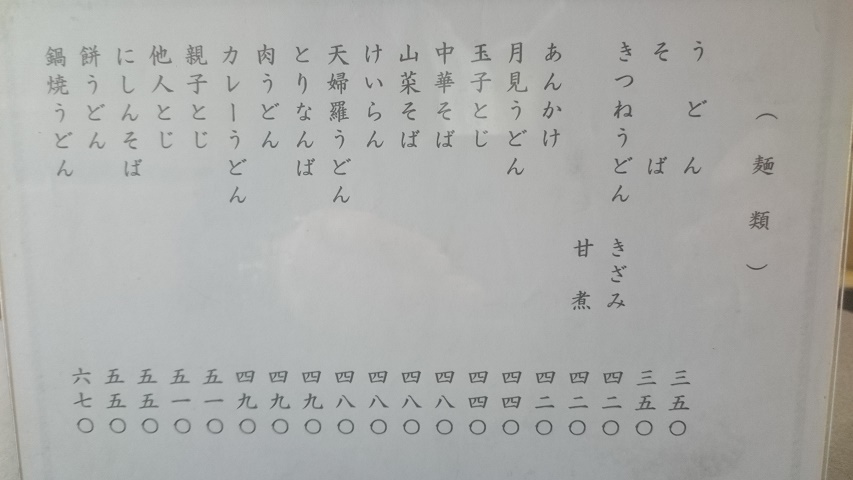 （麺類）
うどん 三五〇
そば 三五〇
きつねうどん きざみ 四二〇
甘煮 四二〇
あんかけ 四二〇
月見うどん 四四〇
玉子とじ 四四〇
中華そば 四八〇
山菜そば 四八〇
けいらん 四八〇
天婦羅うどん 四八〇
とりなんば 四九〇
肉うどん 四九〇
カレーうどん 四九〇
親子とじ 五一〇
他人とじ 五一〇
にしんそば 五五〇
餅うどん 五五〇
鍋焼うどん 六七〇